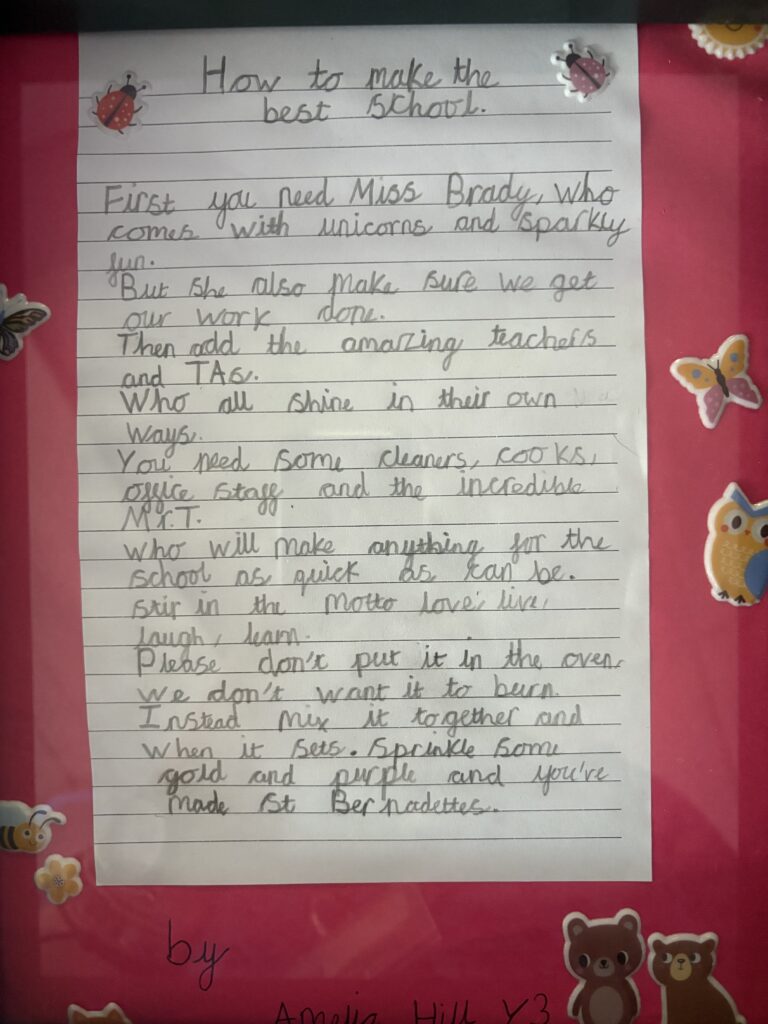 How to make the
best school.
First you need Miss Brady, who
comes with unicorns and sparkly
fun.
But she also make sure we get
our work done.
Then add the amazing teachers
and TAs.
Who all shine in their own
ways.
You need some cleaners, cooks,
office staff and the incredible
Mr.T.
who will make anything for the
school as quick as can be.
stir in the motto love, live,
laugh, learn.
Please don't put it in the oven,
we don't want it to burn.
Instead mix it together and
when it sets. Sprinkle some
gold and purple and you've
made St Bernadettes.
by
Amelia Hill Y3